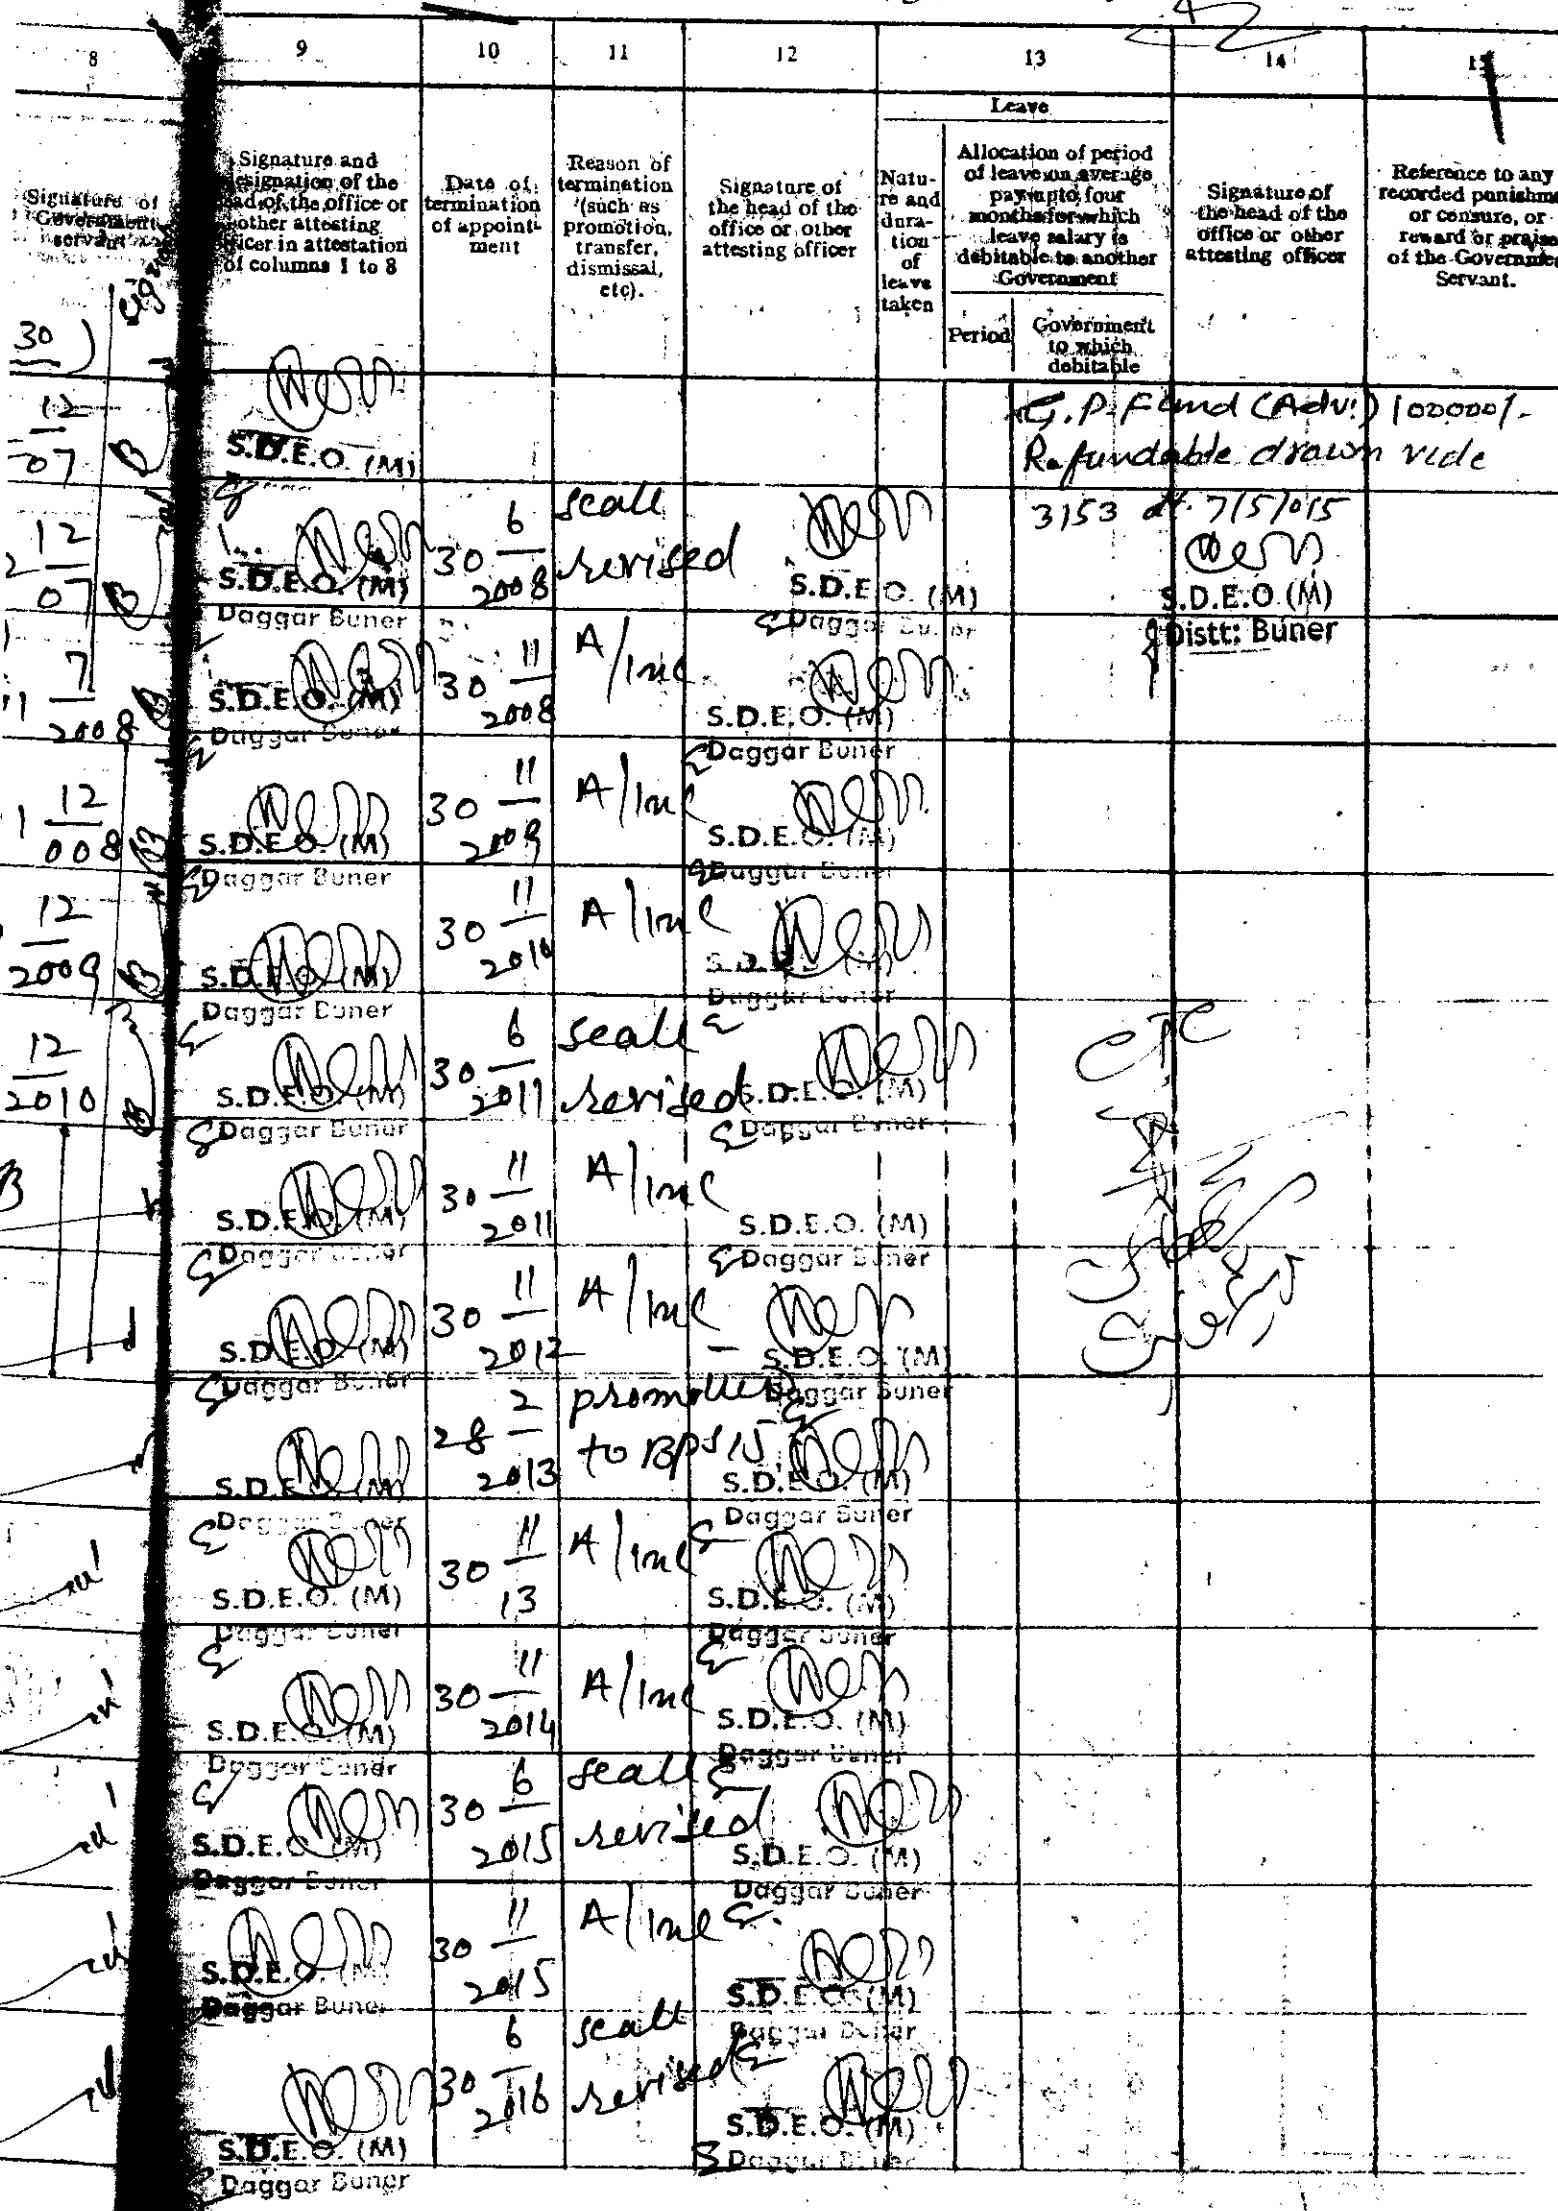 8 9 10 11 12 13 14 15
Leave
Signature of
Government
servant
Signature and
designation of the
head of the office or
other attesting
officer in attestation
of columns 1 to 8
Date of
termination
of appoint-
ment
Reason of
termination
(such as
promotion,
transfer,
dismissal,
etc).
Signature of
the head of the
office or other
attesting officer
Natu-
re and
dura-
tion
of
leave
taken
Allocation of period
of leave on average
pay upto four
months for which
leave salary is
debitable to another
Government
Period
Government
to which
debitable
Signature of
the head of the
office or other
attesting officer
Reference to any
recorded punishme
or censure, or
reward or praise
of the Governme
Servant.
30
12
07
S.D.E.O. (M)
G.P. Fund (Adv:) 100000/-
Refundable drawn vide
3153 dt. 7/5/015
S.D.E.O (M)
Distt: Buner
12
07
S.D.E.O. (M)
Daggar Buner
30 6
2008
scall
revised
S.D.E.O. (M)
Daggar Buner
7
2008
S.D.E.O. (M)
Daggar Buner
30 11
2008
A/Inc
S.D.E.O. (M)
Daggar Buner
1 12
008
S.D.E.O. (M)
Daggar Buner
30 11
2009
A/Inc
S.D.E.O. (M)
Daggar Buner
12
2009
S.D.E.O. (M)
Daggar Buner
30 11
2010
A/Inc
S.D.E.O. (M)
Daggar Buner
12
2010
S.D.E.O. (M)
Daggar Buner
30 6
2011
scall
revised
S.D.E.O. (M)
Daggar Buner
CTC
S.D.E.O. (M)
Daggar Buner
30 11
2011
A/Inc
S.D.E.O. (M)
Daggar Buner
S.D.E.O. (M)
Daggar Buner
30 11
2012
A/Inc
S.D.E.O. (M)
Daggar Buner
S.D.E.O. (M)
Daggar Buner
28 2
2013
promotted
to BPS 15
S.D.E.O. (M)
Daggar Buner
S.D.E.O. (M)
Daggar Buner
30 11
13
A/Inc
S.D.E.O. (M)
Daggar Buner
S.D.E.O. (M)
Daggar Buner
30 11
2014
A/Inc
S.D.E.O. (M)
Daggar Buner
S.D.E.O. (M)
Daggar Buner
30 6
2015
scall
revised
S.D.E.O. (M)
Daggar Buner
S.D.E.O. (M)
Daggar Buner
30 11
2015
A/Inc
S.D.E.O. (M)
Daggar Buner
S.D.E.O. (M)
Daggar Buner
30 6
2016
scall
revised
S.D.E.O. (M)
Daggar Buner